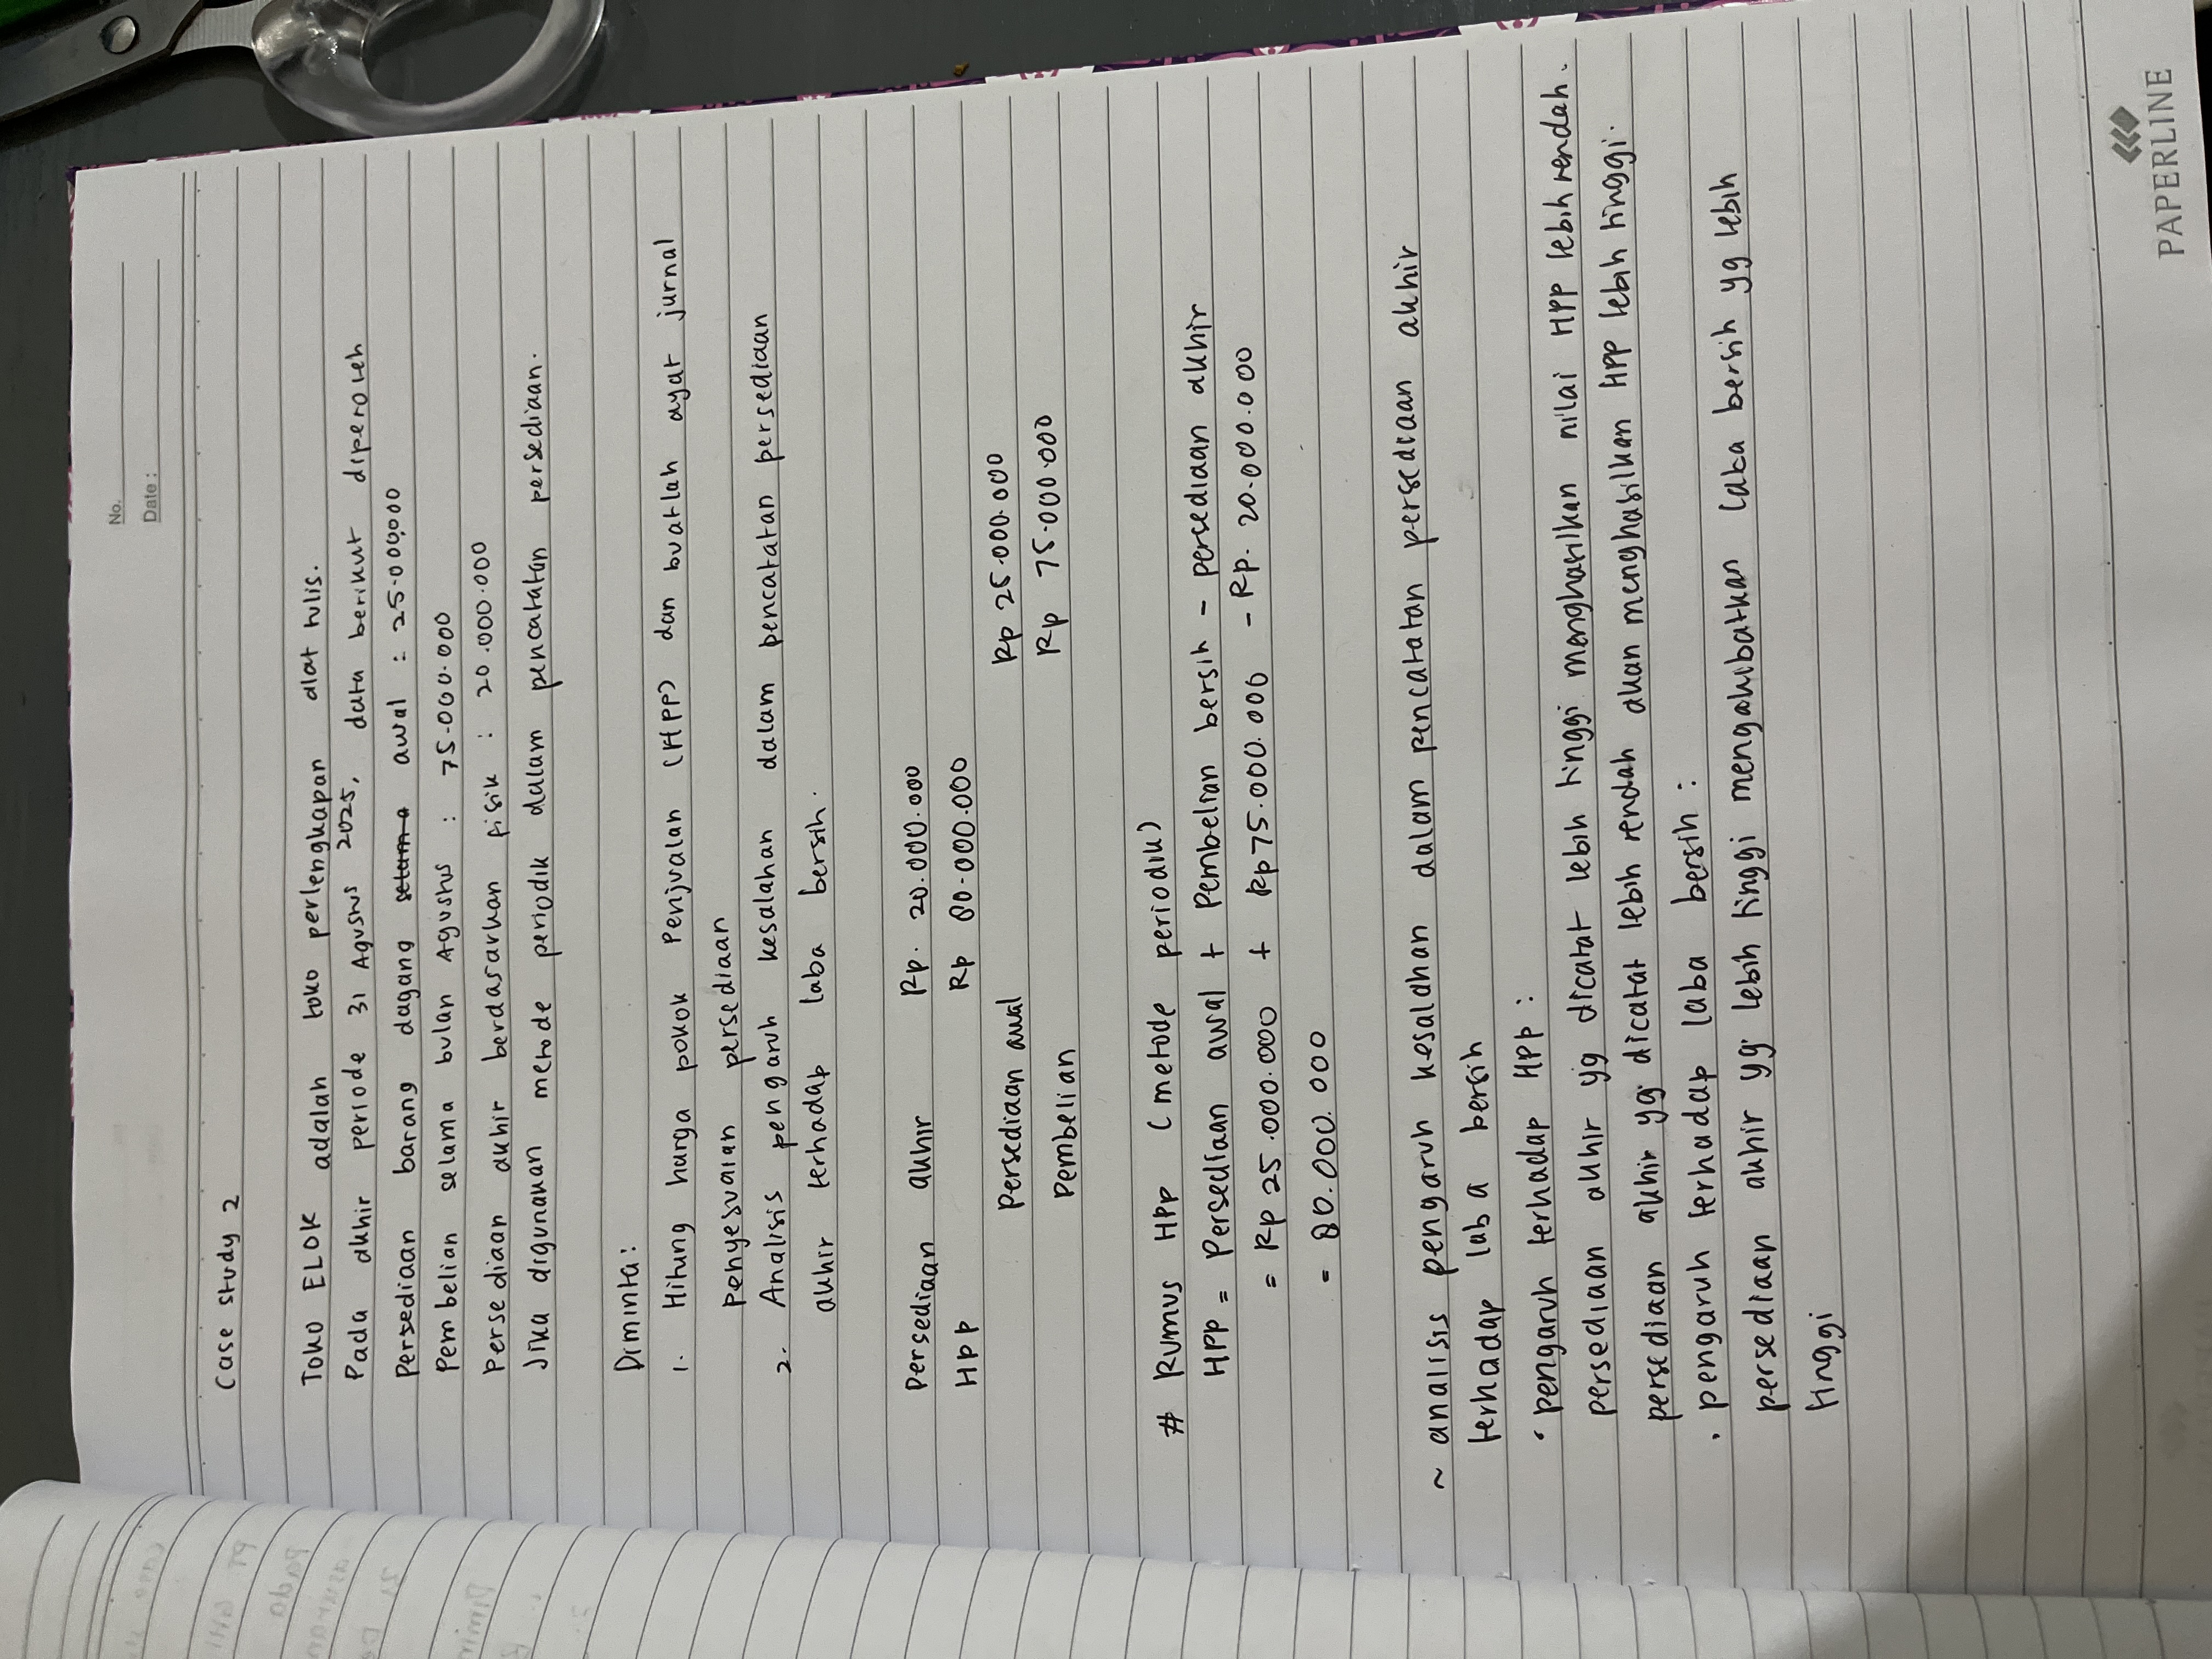 No.
Date :
Case Study 2
Toko ELOK adalah toko perlengkapan alat tulis.
Pada akhir periode 31 Agustus 2025, data berikut diperoleh
Persediaan barang dagang awal : 25.000.000
Pembelian selama bulan Agustus : 75.000.000
Persediaan akhir berdasarkan fisik : 20.000.000
Jika digunakan metode periodik dalam pencatatan persediaan.
Diminta:
1. Hitung harga pokok Penjualan (HPP) dan buatlah ayat jurnal
penyesuaian persediaan
2. Analisis pengaruh kesalahan dalam pencatatan persediaan
akhir terhadap laba bersih.
Persediaan akhir Rp. 20.000.000
HPP Rp 80.000.000
Persediaan awal Rp 25.000.000
Pembelian Rp 75.000.000
# Rumus HPP (metode periodik)
HPP = Persediaan awal + Pembelian bersih - persediaan akhir
= Rp 25.000.000 + Rp 75.000.000 - Rp. 20.000.000
= 80.000.000
~ analisis pengaruh kesalahan dalam pencatatan persediaan akhir
terhadap laba bersih
• pengaruh terhadap HPP :
persediaan akhir yg dicatat lebih tinggi menghasilkan nilai HPP lebih rendah.
persediaan akhir yg dicatat lebih rendah akan menghasilkan HPP lebih tinggi.
• pengaruh terhadap laba bersih :
persediaan akhir yg lebih tinggi mengakibatkan laba bersih yg lebih
tinggi
PAPERLINE